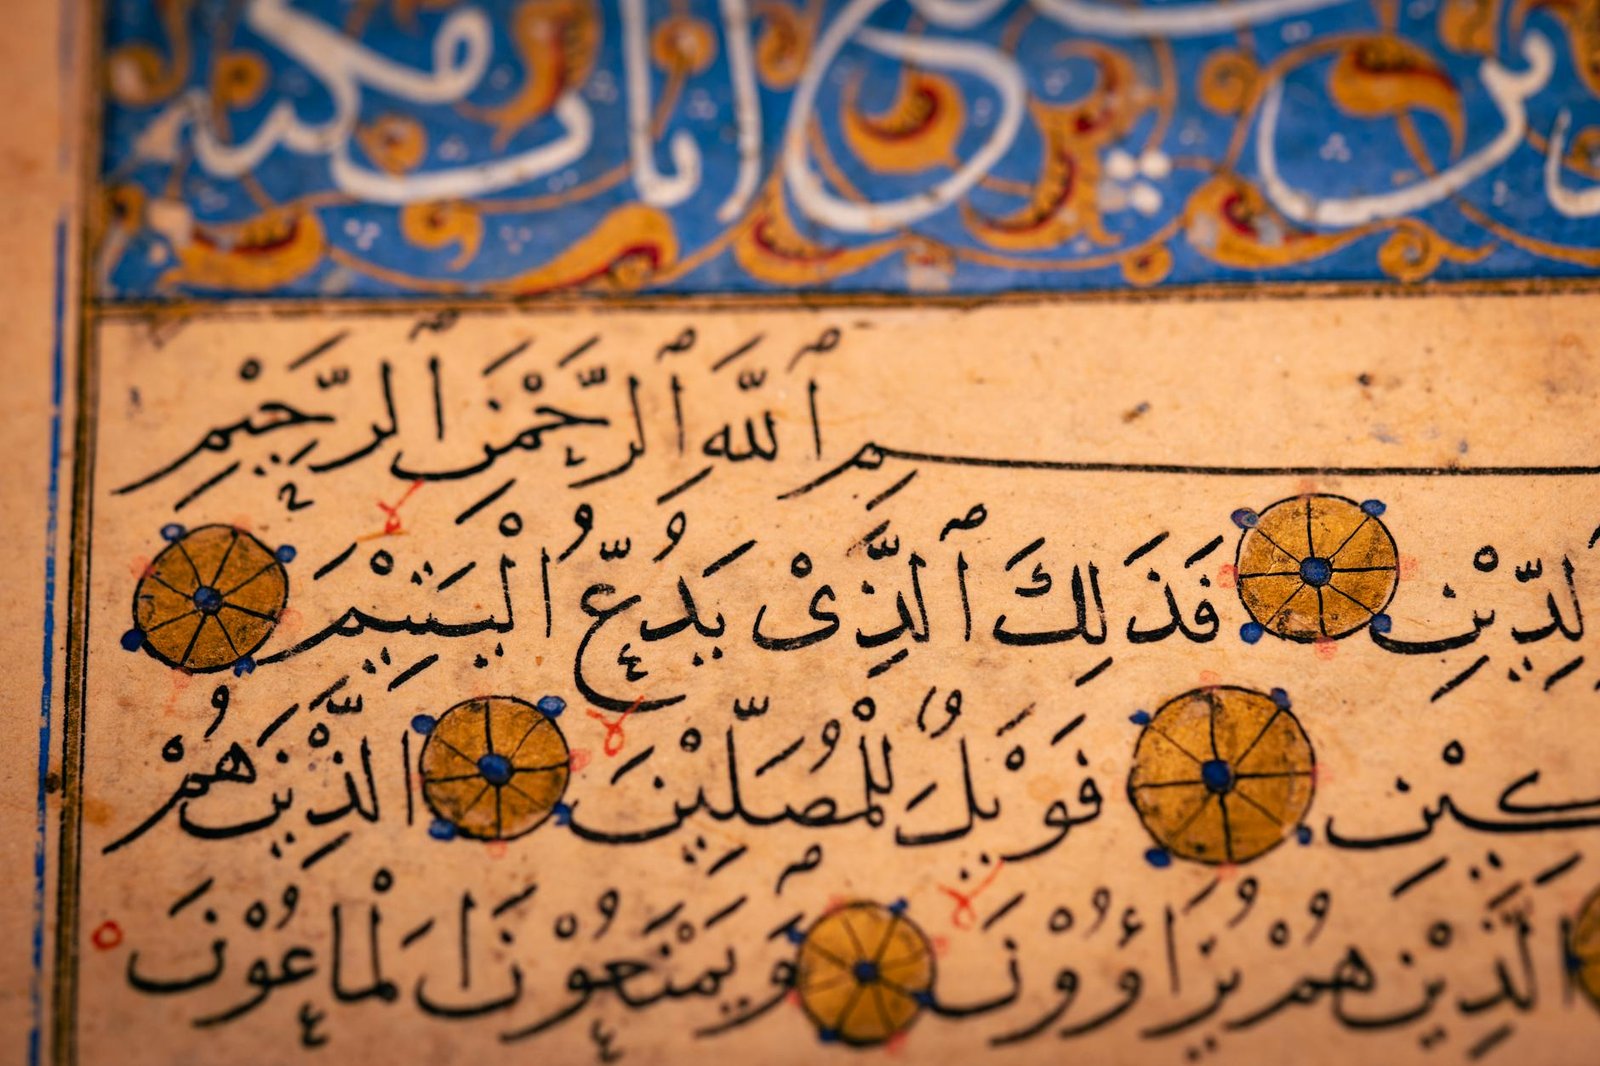 سبع ايات مكيه
ـسمِ ٱللَّهِ ٱلرَّحْمَنِ ٱلرَّحِيْمِ
لدِّيْنِ فَذَلِكَ ٱلَّذِىْ يَدُعُّ الْيَتِيْمَ
ـكِيْنِ فَوَيْلٌ لِلْمُصَلِّيْنَ الَّذِيْنَ هُمْ
الَّذِيْنَ هُمْ يُرَاؤُوْنَ وَيَمْنَعُوْنَ الْمَاعُوْنَ